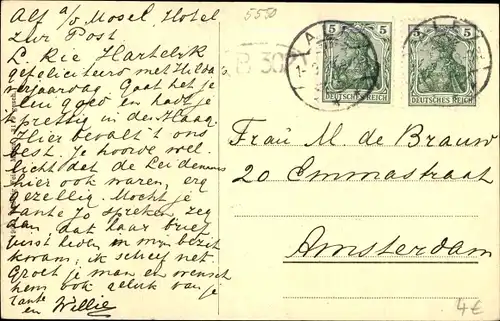 Alf a/d Mosel Hotel
zur Post.
L. Rie Hartelijk
gefeliciteerd met Hilda's
verjaardag. Gaat het je
goed en hadt je
't prettig in den Haag.
Hier bevalt 't ons
best. Je hoorde wel-
licht dat de Leidenaars
hier ook waren, erg
gezellig. Mocht je
tante Jo spreken zeg
dan dat haar brief
heden in mijn bezit
kwam, ik schreef net.
Groet je man en wensch
hem ook geluk van je
tante
en Willie
5550
5 5
DEUTSCHES REICH
5 5
DEUTSCHES REICH
Frau M. de Brauw
20 Emmastraat
Amsterdam
4€